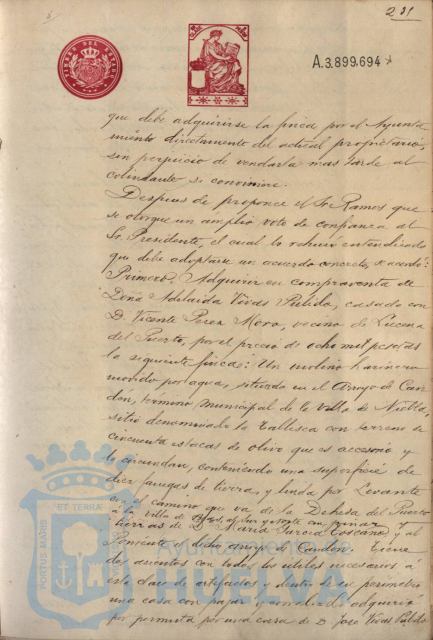 231
TIMBRE DEL ESTADO
A.3.899.694
que debe adquirirse la finca por el Ayunta
miento directamente del actual propietario,
sin perjuicio de venderla mas tarde al
colindante si conviniere.
Despues de proponer el Sr. Ramos que
se otorgue un amplio voto de confianza al
Sr. Presidente, el cual lo rehusó entendiendo
que debe adoptarse un acuerdo concreto, se acordó:
Primero. Adquirir en compraventa de
Doña Adelaida Vivas Pulido, casada con
D. Vicente Perez Moro, vecino de Lucena
del Puerto, por el precio de ocho mil pesetas
la siguiente finca: Un molino harinero
movido por agua, situado en el Arroyo de Can
dón, termino municipal de la Villa de Niebla,
sitio denominado la Vallesca con terreno de
cincuenta estacas de olivo que es accesorio y
lo circundan, conteniendo una superficie de
diez fanegas de tierra, y linda por Levante
con el camino que va de la Dehesa del
á la villa de al Sur y Norte con pinar y
tierras de D. Maria Garcia Toscano y al
Poniente el dicho arroyo Candon. Tiene
dos asientos con todos los utiles necesarios á
esta clase de artefactos y dentro de su perimetro
una casa con pajar y adquirió
por permuta por una casa de D. José Vivas Pulido
ET TERRÆ
PORTUS MARIS
Ayuntamiento
HUELVA